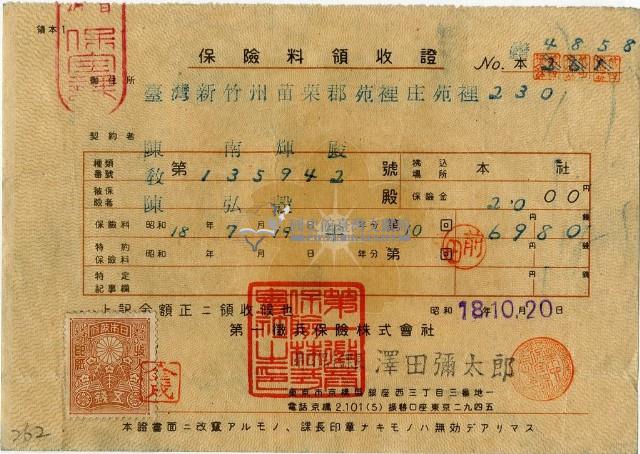 領本1
保險料領收證
No. 本 4858
御住所
臺灣新竹州苗栗郡苑裡庄苑裡230
契約者
陳南輝殿
種類番號 第 敎135942 號 拂込場所 本社
被保險者 陳弘毅 殿 保險金 20 00
保險料 昭和 18年 7月 19日 年分 第10回 6980 前
特約保險料 昭和 年 月 日 年分 第 回
特定記事欄
上記金額正ニ領收候也 昭和 18年10月20日
第一徵兵保險株式會社
澤田彌太郎
東京市京橋區銀座西三丁目三番地一
電話京橋2.101(5)振替口座東京二九四五
本證書面ニ改竄アルモノ、課長印章ナキモノハ無効デアリマス
262